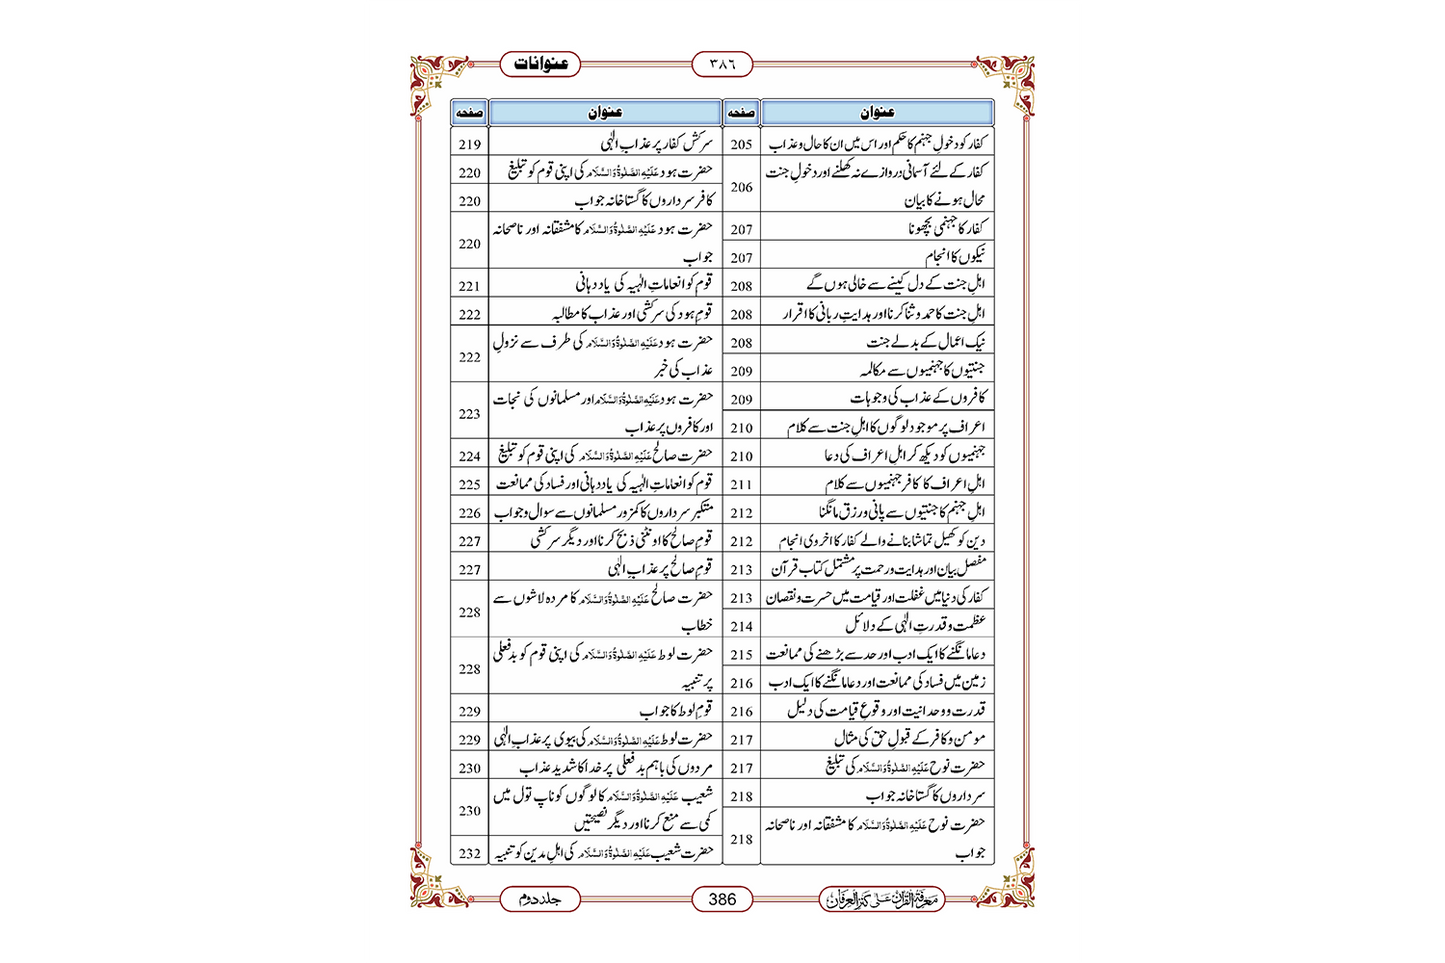 عنوانات
٣٨٦
عنوان
صفحہ
کفار کو دخولِ جہنم کا حکم اور اس میں ان کا حال و عذاب
205
کفار کے لئے آسمانی دروازے نہ کھلنے اور دخولِ جنت
محال ہونے کا بیان
206
کفار کا جہنمی بچھونا
207
نیکوں کا انجام
207
اہلِ جنت کے دل کینے سے خالی ہوں گے
208
اہلِ جنت کا حمد و ثنا کرنا اور ہدایتِ ربانی کا اقرار
208
نیک اعمال کے بدلے جنت
208
جنتیوں کا جہنمیوں سے مکالمہ
209
کافروں کے عذاب کی وجوہات
209
اعراف پر موجود لوگوں کا اہلِ جنت سے کلام
210
جہنمیوں کو دیکھ کر اہلِ اعراف کی دعا
210
اہلِ اعراف کا کافر جہنمیوں سے کلام
211
اہلِ جہنم کا جنتیوں سے پانی و رزق مانگنا
212
دین کو کھیل تماشا بنانے والے کفار کا اخروی انجام
212
مفصل بیان اور ہدایت و رحمت پر مشتمل کتاب قرآن
213
کفار کی دنیا میں غفلت اور قیامت میں حسرت و نقصان
213
عظمت و قدرتِ الٰہی کے دلائل
214
دعا مانگنے کا ایک ادب اور حد سے بڑھنے کی ممانعت
215
زمین میں فساد کی ممانعت اور دعا مانگنے کا ایک ادب
216
قدرت و وحدانیت اور وقوعِ قیامت کی دلیل
216
مومن و کافر کے قبولِ حق کی مثال
217
حضرت نوح عَلَیْہِ الصَّلٰوۃُ وَالسَّلَام کی تبلیغ
217
سرداروں کا گستاخانہ جواب
218
حضرت نوح عَلَیْہِ الصَّلٰوۃُ وَالسَّلَام کا مشفقانہ اور ناصحانہ
جواب
218
عنوان
صفحہ
سرکش کفار پر عذابِ الٰہی
219
حضرت ہود عَلَیْہِ الصَّلٰوۃُ وَالسَّلَام کی اپنی قوم کو تبلیغ
220
کافر سرداروں کا گستاخانہ جواب
220
حضرت ہود عَلَیْہِ الصَّلٰوۃُ وَالسَّلَام کا مشفقانہ اور ناصحانہ
جواب
220
قوم کو انعاماتِ الٰہیہ کی یاد دہانی
221
قومِ ہود کی سرکشی اور عذاب کا مطالبہ
222
حضرت ہود عَلَیْہِ الصَّلٰوۃُ وَالسَّلَام کی طرف سے نزولِ
عذاب کی خبر
222
حضرت ہود عَلَیْہِ الصَّلٰوۃُ وَالسَّلَام اور مسلمانوں کی نجات
اور کافروں پر عذاب
223
حضرت صالح عَلَیْہِ الصَّلٰوۃُ وَالسَّلَام کی اپنی قوم کو تبلیغ
224
قوم کو انعاماتِ الٰہیہ کی یاد دہانی اور فساد کی ممانعت
225
متکبر سرداروں کا کمزور مسلمانوں سے سوال و جواب
226
قومِ صالح کا اونٹنی ذبح کرنا اور دیگر سرکشی
227
قومِ صالح پر عذابِ الٰہی
227
حضرت صالح عَلَیْہِ الصَّلٰوۃُ وَالسَّلَام کا مردہ لاشوں سے
خطاب
228
حضرت لوط عَلَیْہِ الصَّلٰوۃُ وَالسَّلَام کی اپنی قوم کو بدفعلی
پر تنبیہ
228
قومِ لوط کا جواب
229
حضرت لوط عَلَیْہِ الصَّلٰوۃُ وَالسَّلَام کی بیوی پر عذابِ الٰہی
229
مردوں کی باہم بدفعلی پر خدا کا شدید عذاب
230
شعیب عَلَیْہِ الصَّلٰوۃُ وَالسَّلَام کا لوگوں کو ناپ تول میں
کمی سے منع کرنا اور دیگر نصیحتیں
230
حضرت شعیب عَلَیْہِ الصَّلٰوۃُ وَالسَّلَام کی اہلِ مدین کو تنبیہ
232
معرفۃ القرآن علیٰ کنز العرفان
386
جلد دوم